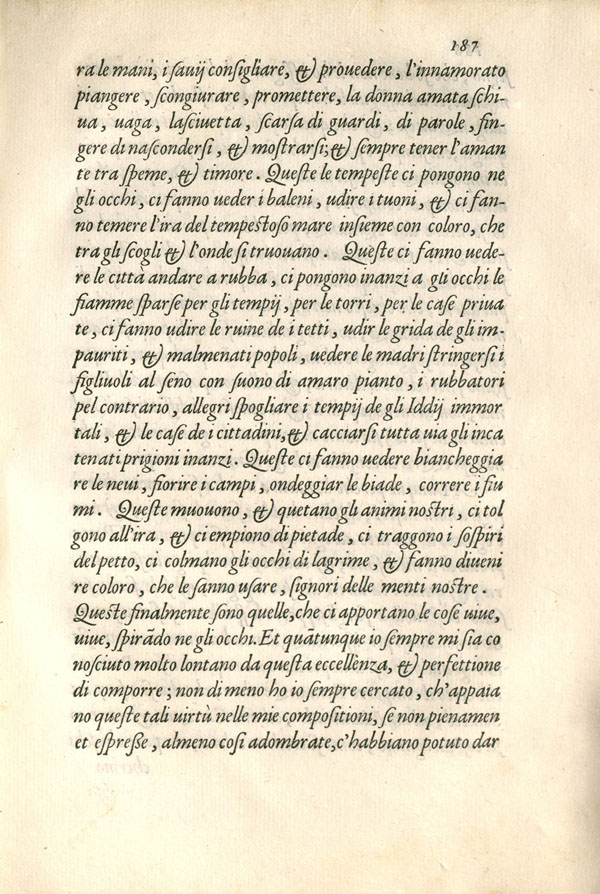 187
ra le mani, i sauij consigliare, & prouedere, l'innamorato
piangere, scongiurare, promettere, la donna amata schi-
ua, uaga, lasciuetta, scarsa di guardi, di parole, fin-
gere di nascondersi, & mostrarsi; & sempre tener l'aman
te tra speme, & timore. Queste le tempeste ci pongono ne
gli occhi, ci fanno ueder i baleni, udire i tuoni, & ci fan-
no temere l'ira del tempestoso mare insieme con coloro, che
tra gli scogli & l'onde si truouano. Queste ci fanno uede-
re le città andare a rubba, ci pongono inanzi a gli occhi le
fiamme sparse per gli tempij, per le torri, per le case priua
te, ci fanno udire le ruine de i tetti, udir le grida de gli im-
pauriti, & malmenati popoli, uedere le madri stringersi i
figliuoli al seno con suono di amaro pianto, i rubbatori
pel contrario, allegri spogliare i tempij de gli Iddij immor
tali, & le case de i cittadini, & cacciarsi tutta uia gli inca
tenati prigioni inanzi. Queste ci fanno uedere biancheggia
re le neui, fiorire i campi, ondeggiar le biade, correre i fiu
mi. Queste muouono, & quetano gli animi nostri, ci tol
gono all'ira, & ci empiono di pietade, ci traggono i sospiri
del petto, ci colmano gli occhi di lagrime, & fanno diueni
re coloro, che le sanno usare, signori delle menti nostre.
Queste finalmente sono quelle, che ci apportano le cose uiue,
uiue, spirādo ne gli occhi. Et quātunque io sempre mi sia co
nosciuto molto lontano da questa eccellēnza, & perfettione
di comporre; non di meno ho io sempre cercato, ch'appaia
no queste tali uirtù nelle mie compositioni, se non pienamen
et espresse, almeno cosi adombrate, c'habbiano potuto dar